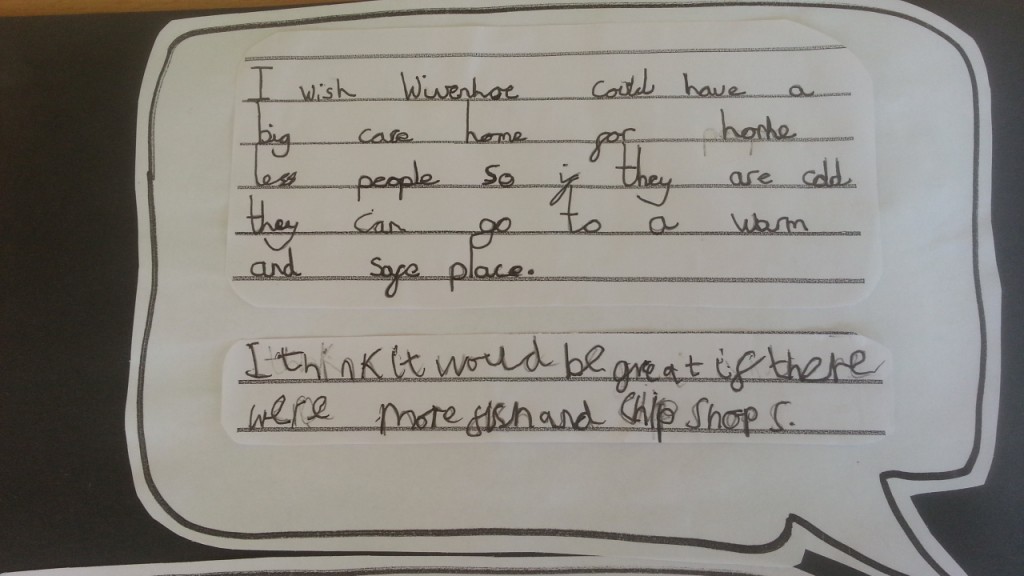 I wish Wivenhoe could have a
big care home for home
less people so if they are cold
they can go to a warm
and safe place.
I think it would be great if there
were more fish and chip shops.